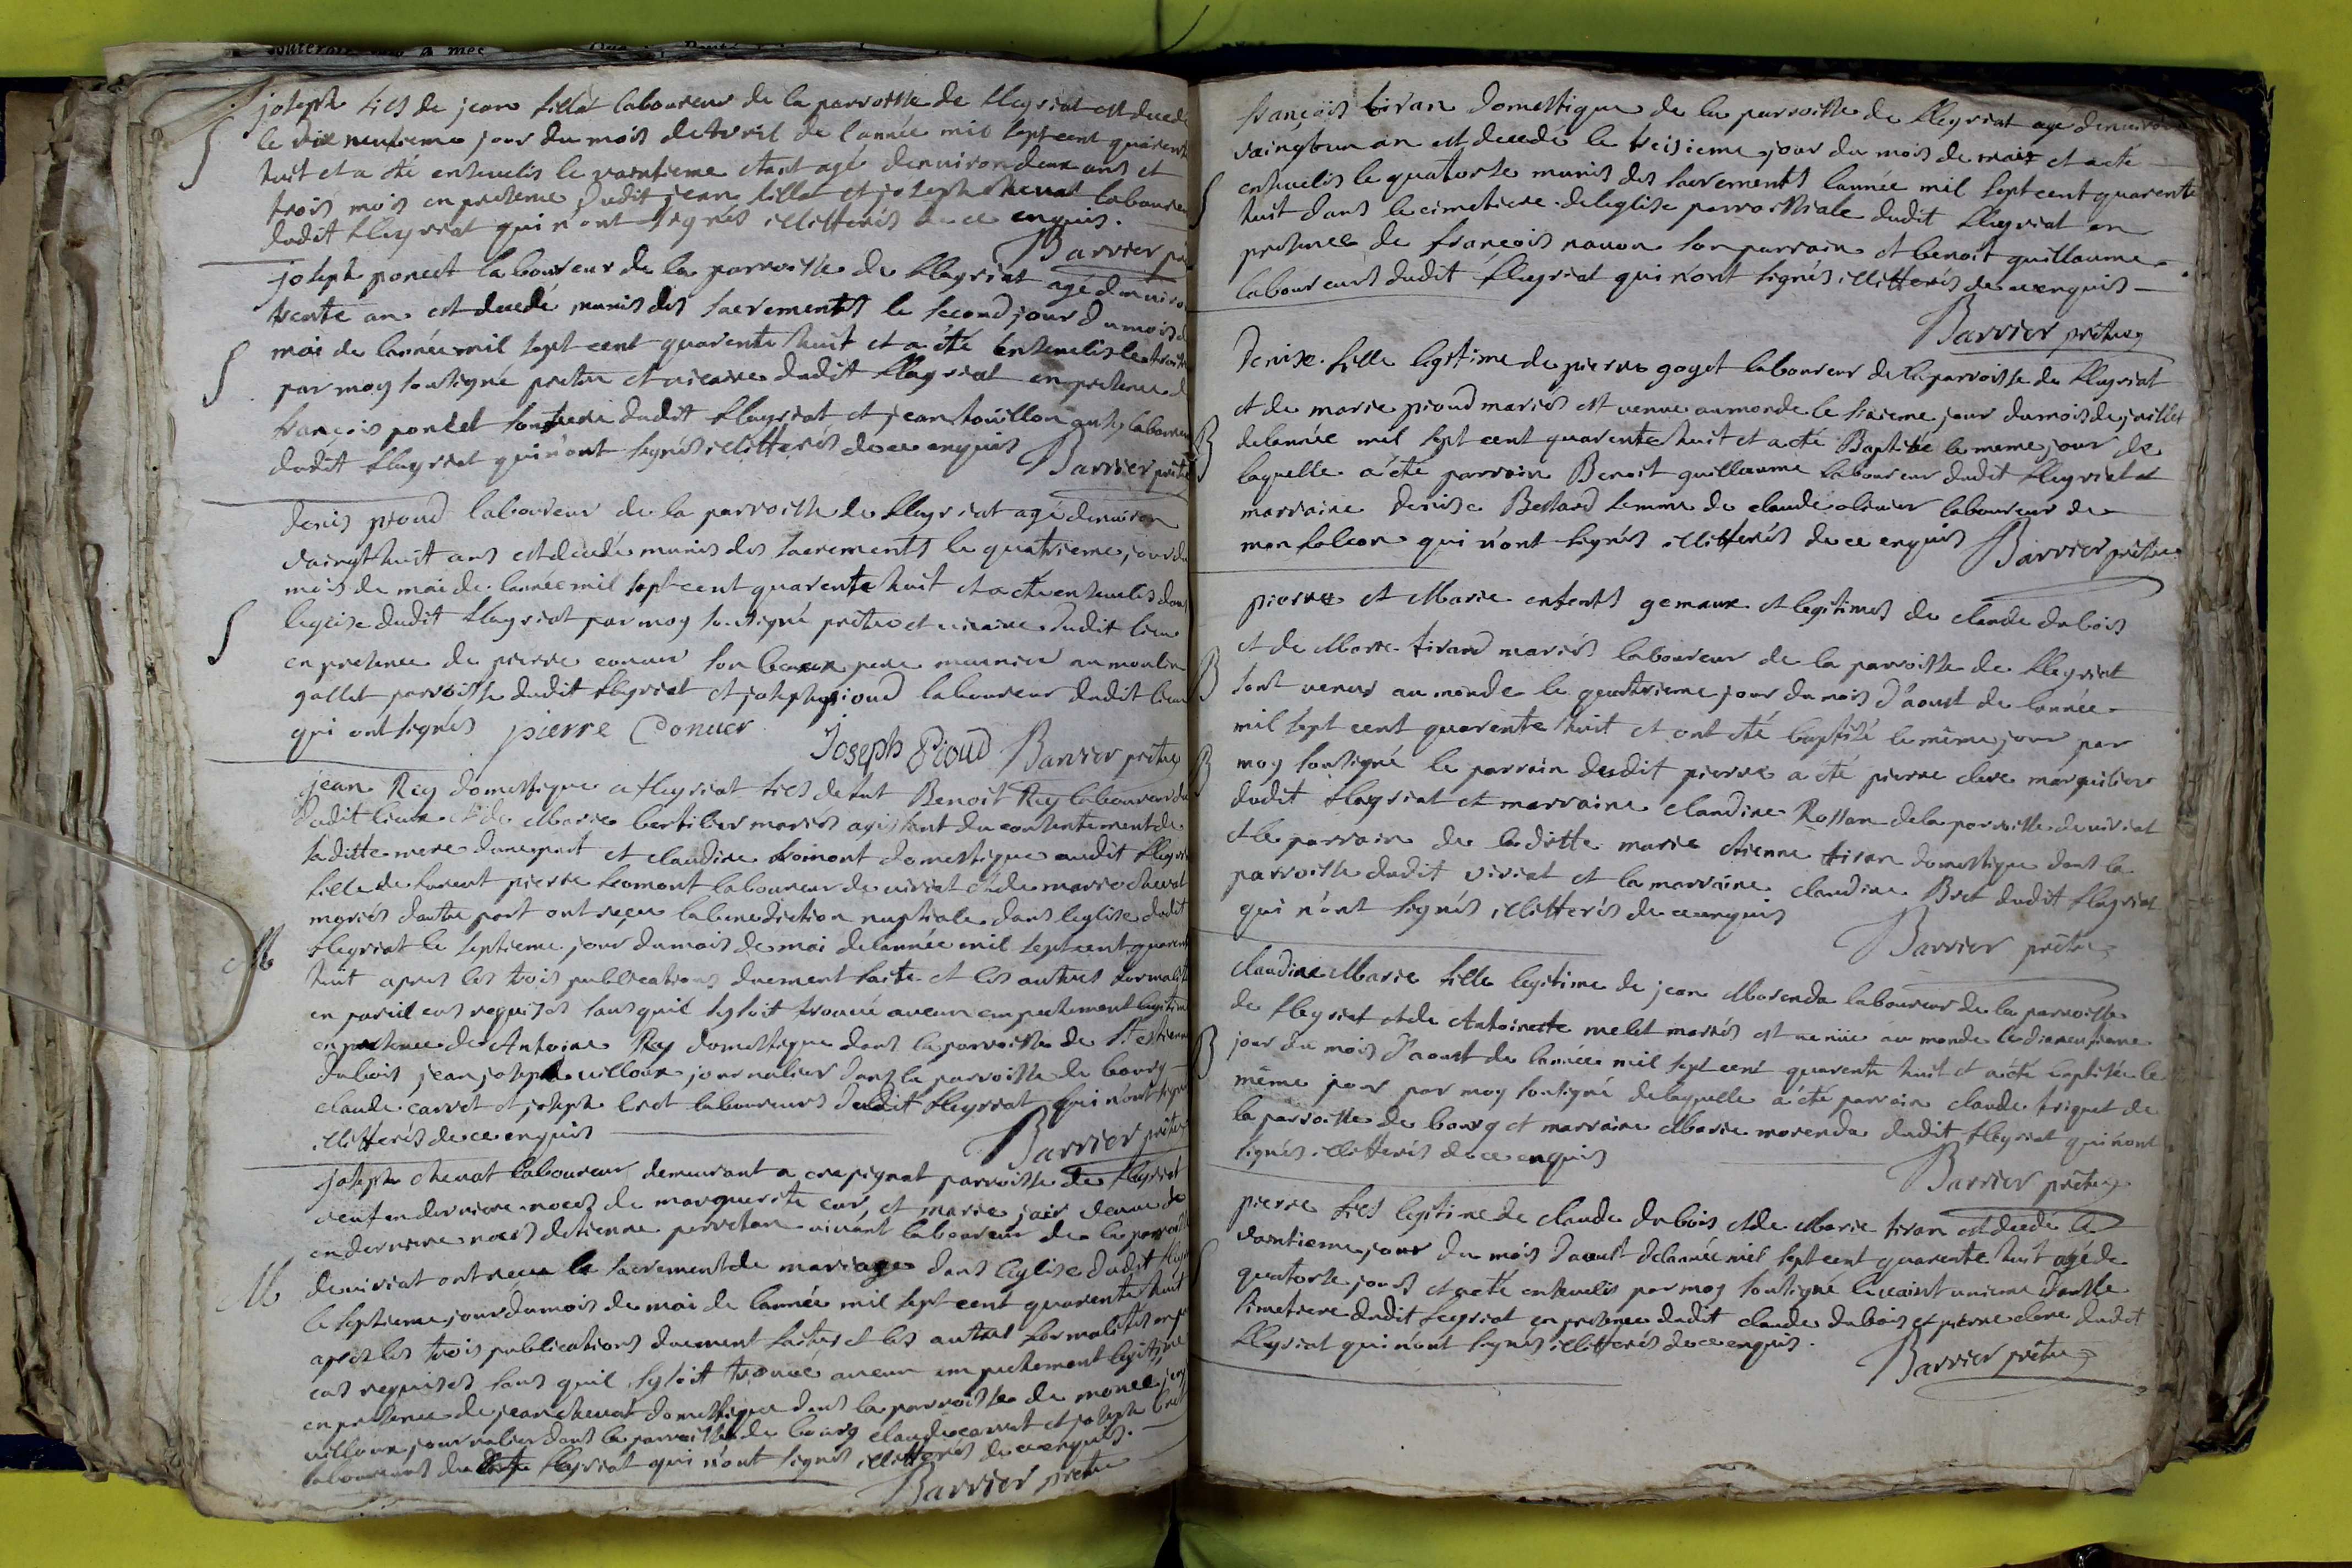 joseph fils de jean fillot laboureur de la parroisse de fleyriat est decedé
le dix neufieme jour du mois d'avril de l'année mil sept cent quarente
huit et a été enseuelis le vaintieme etant agé denuiron deux ans et
trois mois en presence dudit jean fillot et joseph chevat laboureur
dudit fleyriat qui n'ont signés illitterés de ce enquis.
Barrier
joseph poncet laboureur de la parroisse de fleyriat agé denuiron
trente an est decedé munis des sacrements le second jour du mois de
mai de lannée mil sept cent quarente huit et a été enseuelis le troisieme
par moy soutigné pretre et uicaire dudit fleyriat en presence de
françois poncet son frere dudit fleyriat et jean laboureur
dudit fleyriat qui n'ont signés illitterés de ce enquis
Barrier prêtre
Denis pioud laboureur de la parroisse de fleyriat agé denuiron
vaingt huit ans est decedé munis des sacrements le quatrieme jour du
mois de mai de lannée mil sept cent quarente huit et a été enseuelis dans
leglise dudit fleyriat par moy soutigné prêtre et uicaire dudit lieu
en presence de pierre conuer son beaux pere meunier au moulin
gallet parroisse dudit fleyriat et joseph pioud laboureur dudit lieu
qui ont signés pierre Conuer Joseph Pioud Barrier prêtre
jean Rey domestique a fleyriat fils de fut Benoit Rey laboureur
dudit lieux et de Marie bertilier mariés agissant du consentement de
saditte mere dune part et claudine fromont domestique audit fleyriat
fille de furent pierre fromont laboureur de uiriat et de marie chevat
mariés dautre part ont reçeu la benediction nuptiale dans leglise dudit
M fleyriat le septieme jour du mois de mai de lannée mil sept cent quarente
huit apres les trois publications duement faite et les autres formalités
en pareil cas requises sans quil sy soit trouué aucun empechement legitime
en presence de Antoine Rey domestique dans la parroisse de St estienne
dubois jean joseph uilloux journalier dans la parroisse de bourg
claude carret et joseph bret laboureurs dudit fleyriat qui n'ont signés
illitterés de ce enquis
Barrier prêtre
joseph chevat laboureur demeurant a crepignat parroisse de fleyriat
ueuf en derniere noces de marguerite et marie jair ueuue
en derniere noces detienne perretan uiuant laboureur de la parroisse
M de uiriat ont receu le sacrement de mariage dans leglise dudit fleyriat
le septieme jour du mois de mai de lannée mil sept cent quarente huit
apres les trois publications duement faites et les autres formalités en
cas requises sans quil sy soit trouué aucun empechement legitime
en presence de jean chevat domestique dans la parroisse de
uilloux journalier dans la parroisse de bourg claude carret et joseph bret
laboureurs fleyriat qui n'ont signés illitterés de ce enquis.
Barrier pretre
françois tiran domestique de la parroisse de fleyriat agé denuiron
vaingt un an est decedé le treisieme jour du mois de mais et a été
enseuelis le quatorse munis des sacrements lannée mil sept cent quarente
huit dans le cimetiere de leglise parroissiale dudit fleyriat en
presence de françois son parrain et benoit guillaume
laboureurs dudit fleyriat qui n'ont signés illitterés de ce enquis
Barrier prêtre
Denise fille legitime de pierre goyet laboureur de la parroisse de fleyriat
et de marie pioud mariés est uenue au monde le sixieme jour du mois de juillet
B de lannée mil sept cent quarente huit et a été Baptisée le meme jour de
laquelle a été parrain Benoit guillaume laboureur dudit fleyriat et
marraine Denise Bestard femme de claude oliuier laboureur de
monfalcon qui n'ont signés illitterés de ce enquis Barrier prêtre
pierre et Marie enfents gemaux et legitimes de claude dubois
et de Marie tirand mariés laboureur de la parroisse de fleyriat
B sont uenus au monde le quatrieme jour du mois d'aoust de lannée
mil sept cent quarente huit et ont été baptisé le même jour par
B moy soutigné le parrain dudit pierre a été pierre clere marguilier
dudit fleyriat et marraine claudine Rossan de la parroisse de uiriat
et le parrain de laditte marie etienne tiran domestique dans la
parroisse dudit viriat et la marraine claudine Bret dudit fleyriat
qui n'ont signés illitterés de ce enquis
Barrier prêtre
claudine Marie fille legitime de jean Morenda laboureur de la parroisse
de fleyriat et de Antoinette melet mariés est uenüe au monde le dixneuuieme
B jour du mois d'aoust de lannée mil sept cent quarente huit et a été baptisée le
même jour par moy soutigné de laquelle a été parrain claude triquet de
la parroisse de bourg et marraine Marie morenda dudit fleyriat qui n'ont
signés illitterés de ce enquis
Barrier prêtre
pierre fils legitime de claude dubois et de Marie tiran est decedé le
vaintieme jour du mois d'aoust de lannée mil sept cent quarente huit agé de
quatorse jours et a été enseuelis par moy soutigné le vaint unieme dans le
simetiere dudit fleyriat en presence dudit claude dubois et pierre clere dudit
fleyriat qui n'ont signés illitterés de ce enquis.
Barrier prêtre